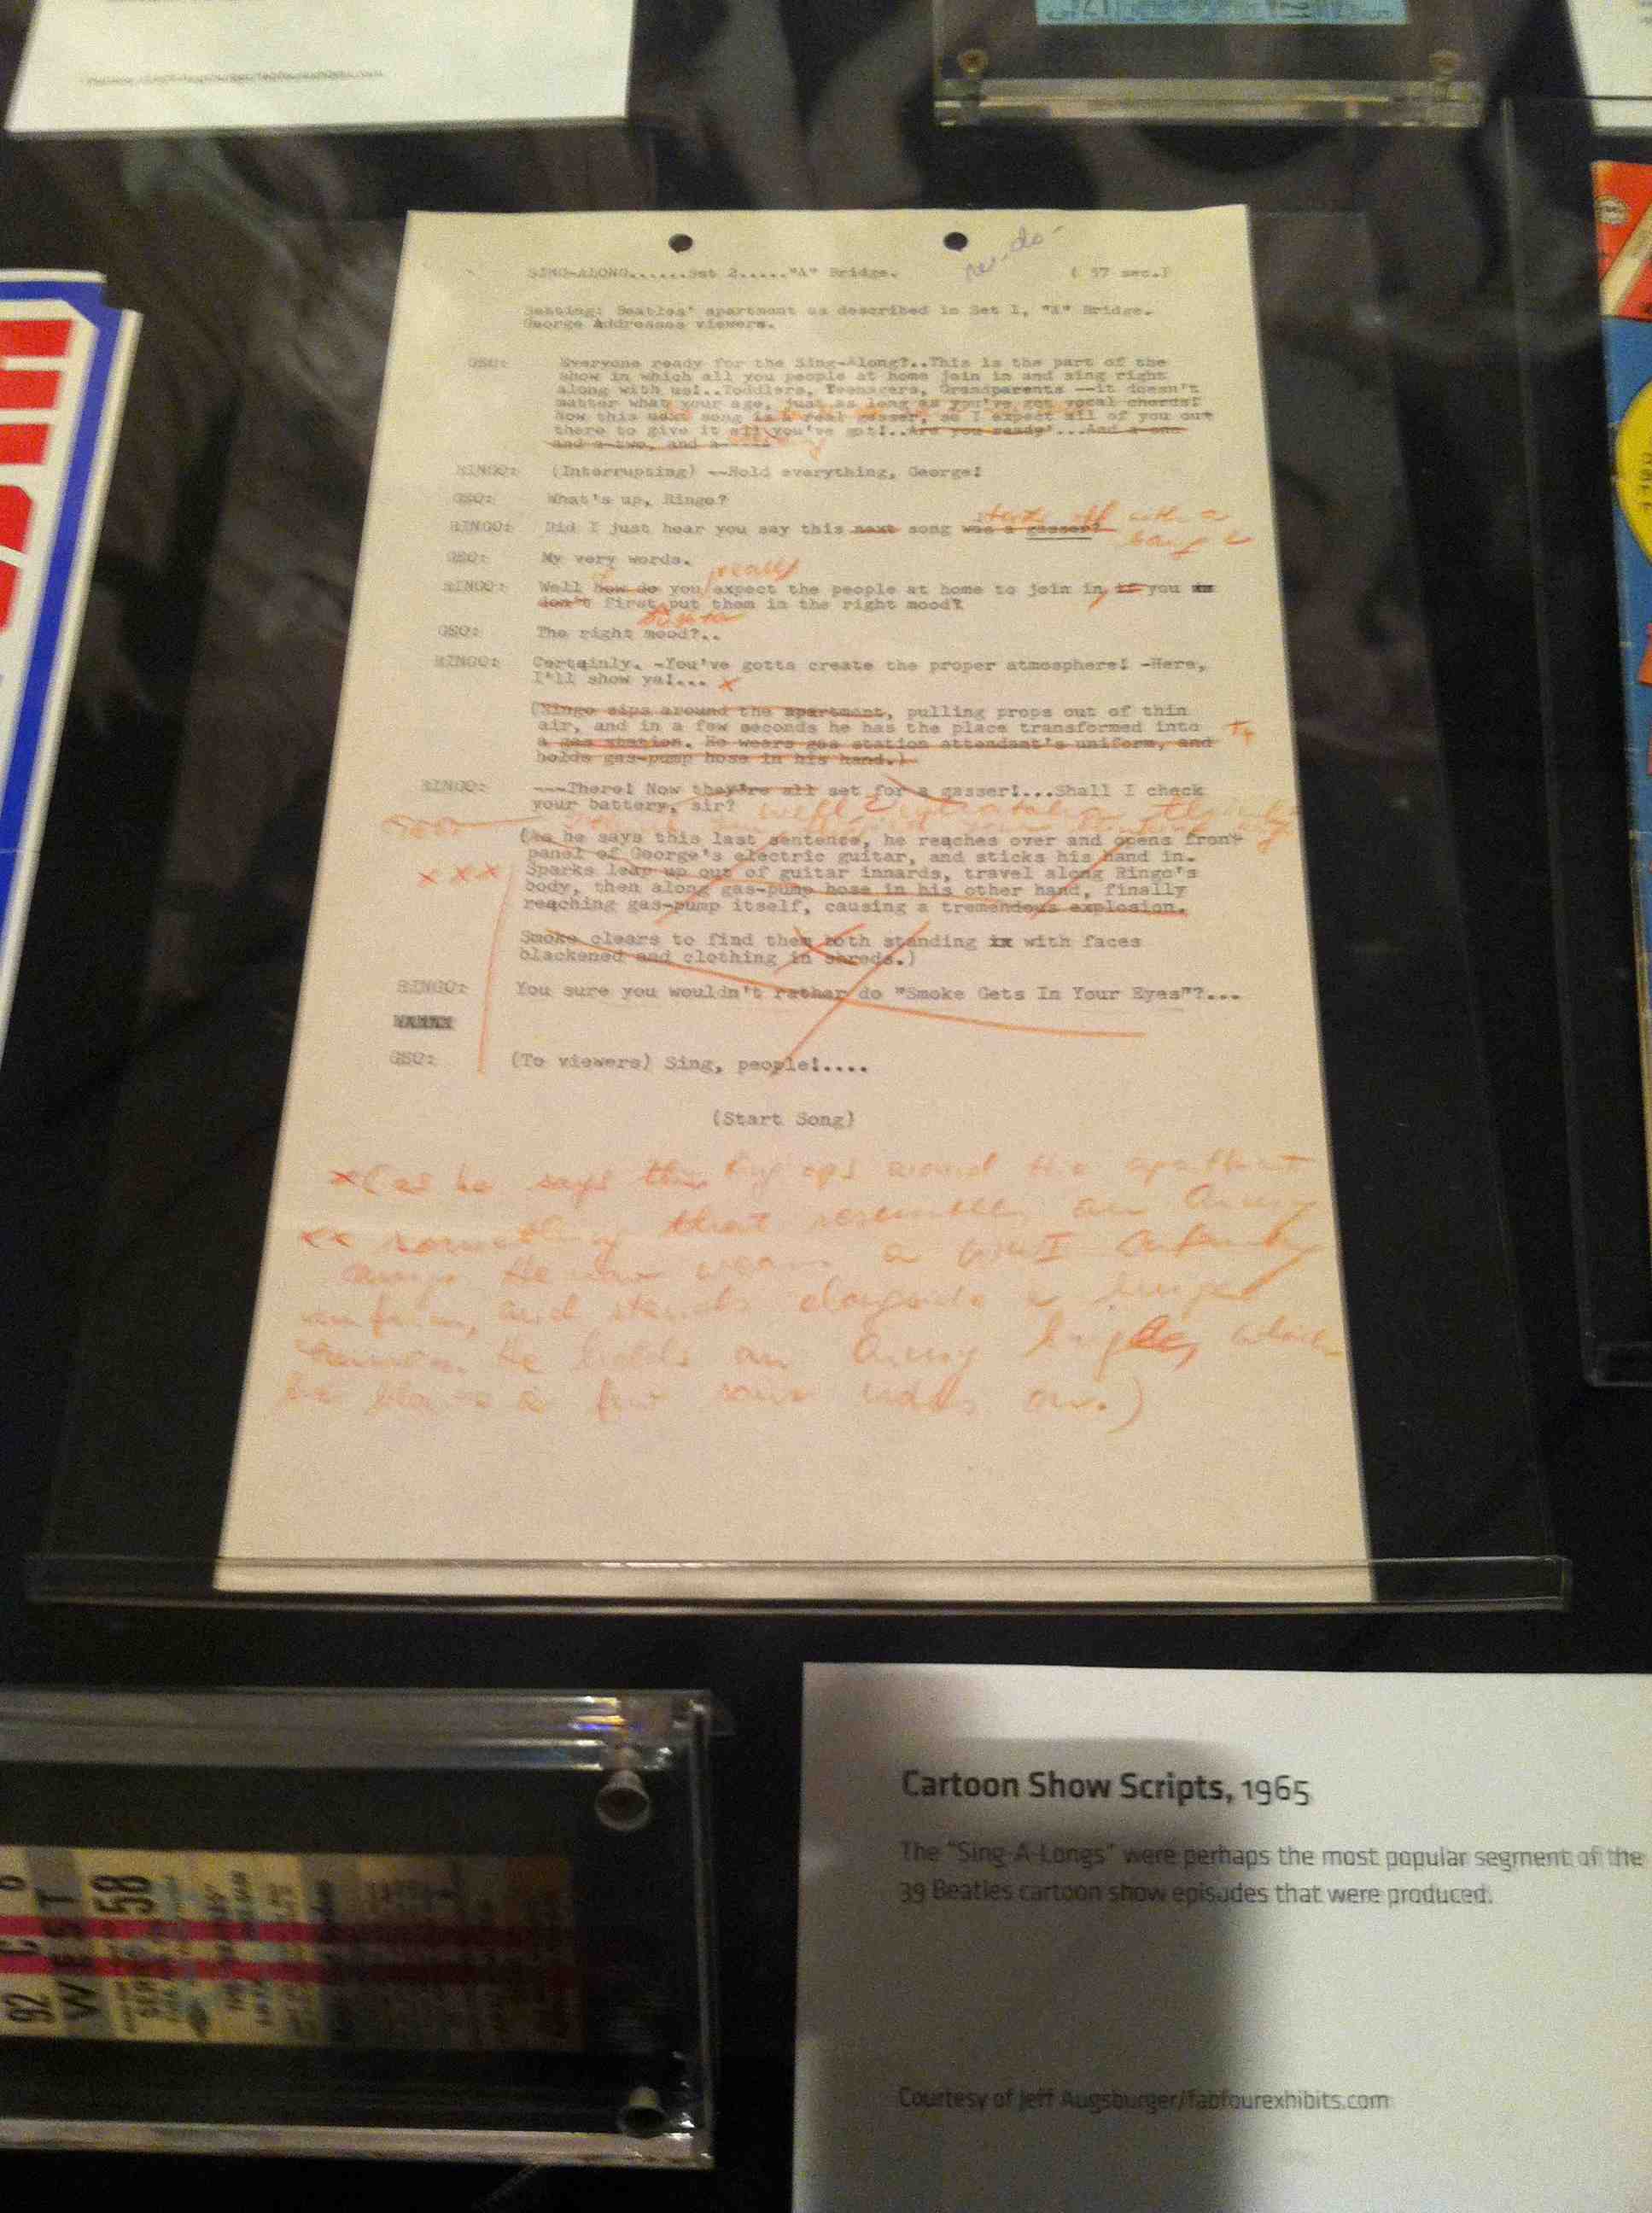 re-do-
SING-ALONG......Set 2....."A" Bridge. ( 57 sec.)
Setting: Beatles' apartment as described in Set 1, "A" Bridge.
George Addresses viewers.
GEO: Everyone ready for the Sing-Along?..This is the part of the
show in which all you people at home join in and sing right
along with us!..Toddlers, Teenagers, Grandparents --it doesn't
matter what your age, just as long as you've got vocal chords!
Now this next song is a real gasser, so I expect all of you out
there to give it all you've got!..Are you ready'...And a-one
and a-two, and a-----
RINGO: (Interrupting) --Hold everything, George!
GEO: What's up, Ringo?
starts off with a
RINGO: Did I just hear you say this next song was a gasser?
bang
GEO: My very words.
really
RINGO: Well how do you expect the people at home to join in, if you
don't first put them in the right mood?
GEO: The right mood?..
RINGO: Certainly. -You've gotta create the proper atmosphere! -Here,
I'll show ya!... x
(Ringo zips around the apartment, pulling props out of thin
air, and in a few seconds he has the place transformed into
a gas station. He wears gas station attendant's uniform, and
holds gas-pump hose in his hand.)
RINGO: ---There! Now they're all set for a gasser!...Shall I check
your battery, sir?
(As he says this last sentence, he reaches over and opens front
panel of George's electric guitar, and sticks his hand in.
x x x Sparks leap up out of guitar innards, travel along Ringo's
body, then along gas-pump hose in his other hand, finally
reaching gas-pump itself, causing a tremendous explosion.
Smoke clears to find them both standing with faces
blackened and clothing in shreds.)
RINGO: You sure you wouldn't rather do "Smoke Gets In Your Eyes"?...
GEO: (To viewers) Sing, people!....
(Start Song)
x(as he says this zips around the apartment
xx something that resembles an Army
camp. He now wears a WWI
uniform, and stands alongside a huge
He holds an Army bugle, which
he blows a few sour notes on.)
92 C 6
WEST
58
Cartoon Show Scripts, 1965
The "Sing-A-Longs" were perhaps the most popular segment of the
39 Beatles cartoon show episodes that were produced.
Courtesy of Jeff Augsburger/fabfourexhibits.com